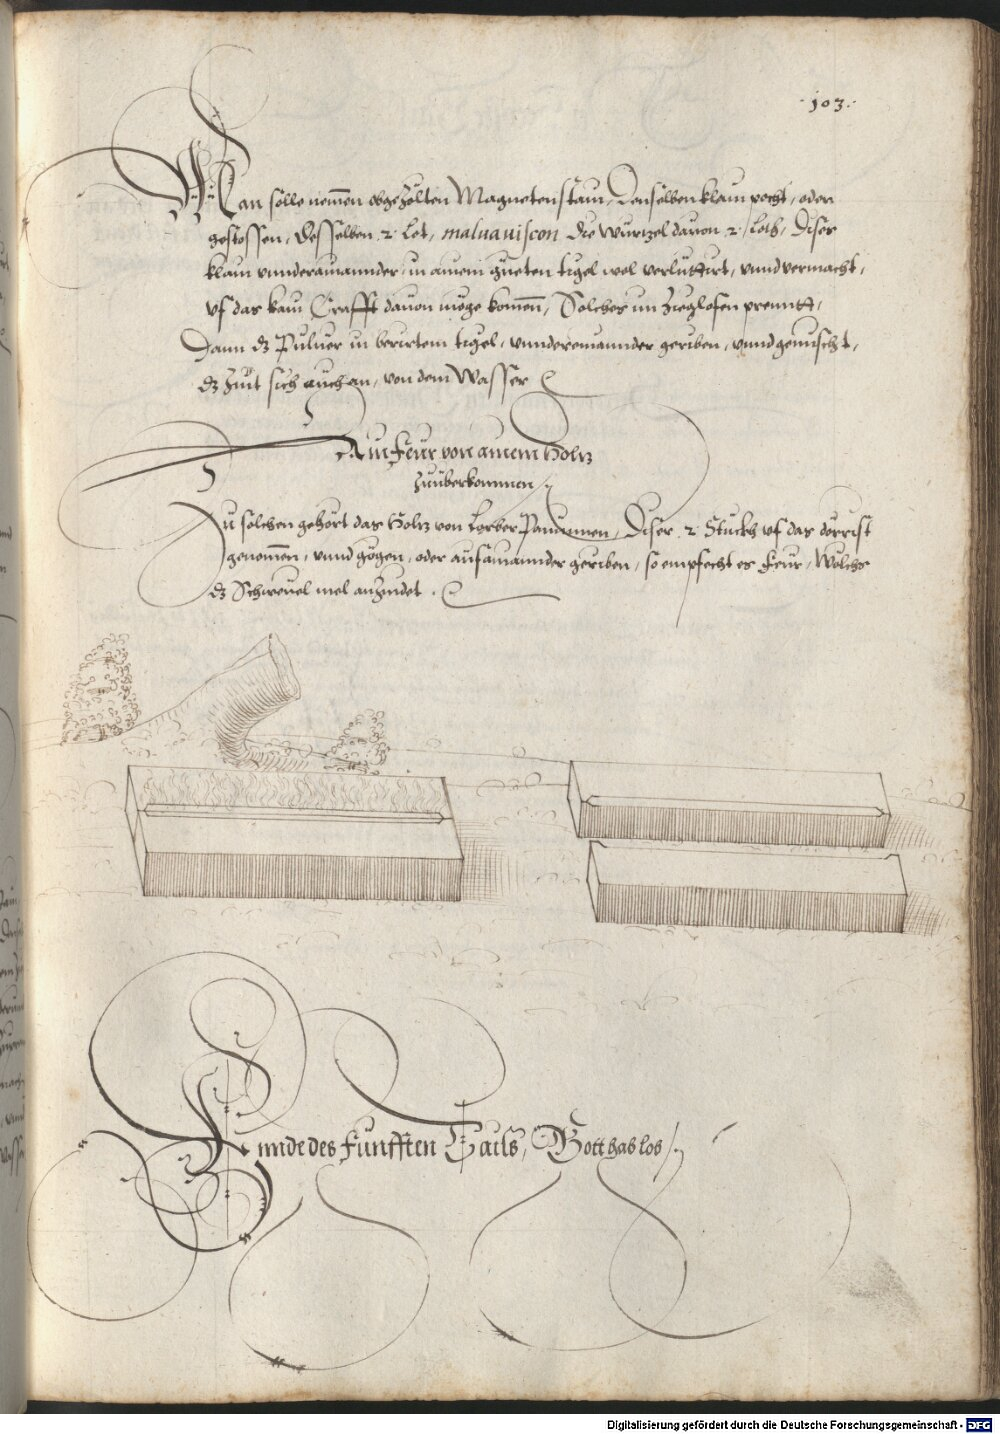 ·103·
Man solle nemmen obgezölten Magnetenstain, Denselben klain pocht, oder
gestossen, Desselben .2. Lot, maluauiscon die wurtzel dauon .2. loth, Diser
klain vnnderainannder, in ainem gueten tigel wol verluttirt, vnnd vermacht,
vf das kain Crafft dauon müge komen, Solches im Zieglofen prenntt,
Dann dz Puluer in berirtem tigel, vnnderainannder geriben, vnnd gemischt,
dz Zint sich auch an, von dem Wasser
Ain Feur von ainem Holtz
zuüberkommen
Zu solchen gehört das Holtz von Lorber Paummen, Diser .2. Stuckh vf das dörrist
genomen, vnnd gögen, oder aufainannder geriben, so empfecht es Feur, Welchs
dz Schweuel mel anzindet.
Ennde des Funfften Tails, Gott hab lob
Digitalisierung gefördert durch die Deutsche Forschungsgemeinschaft - DFG